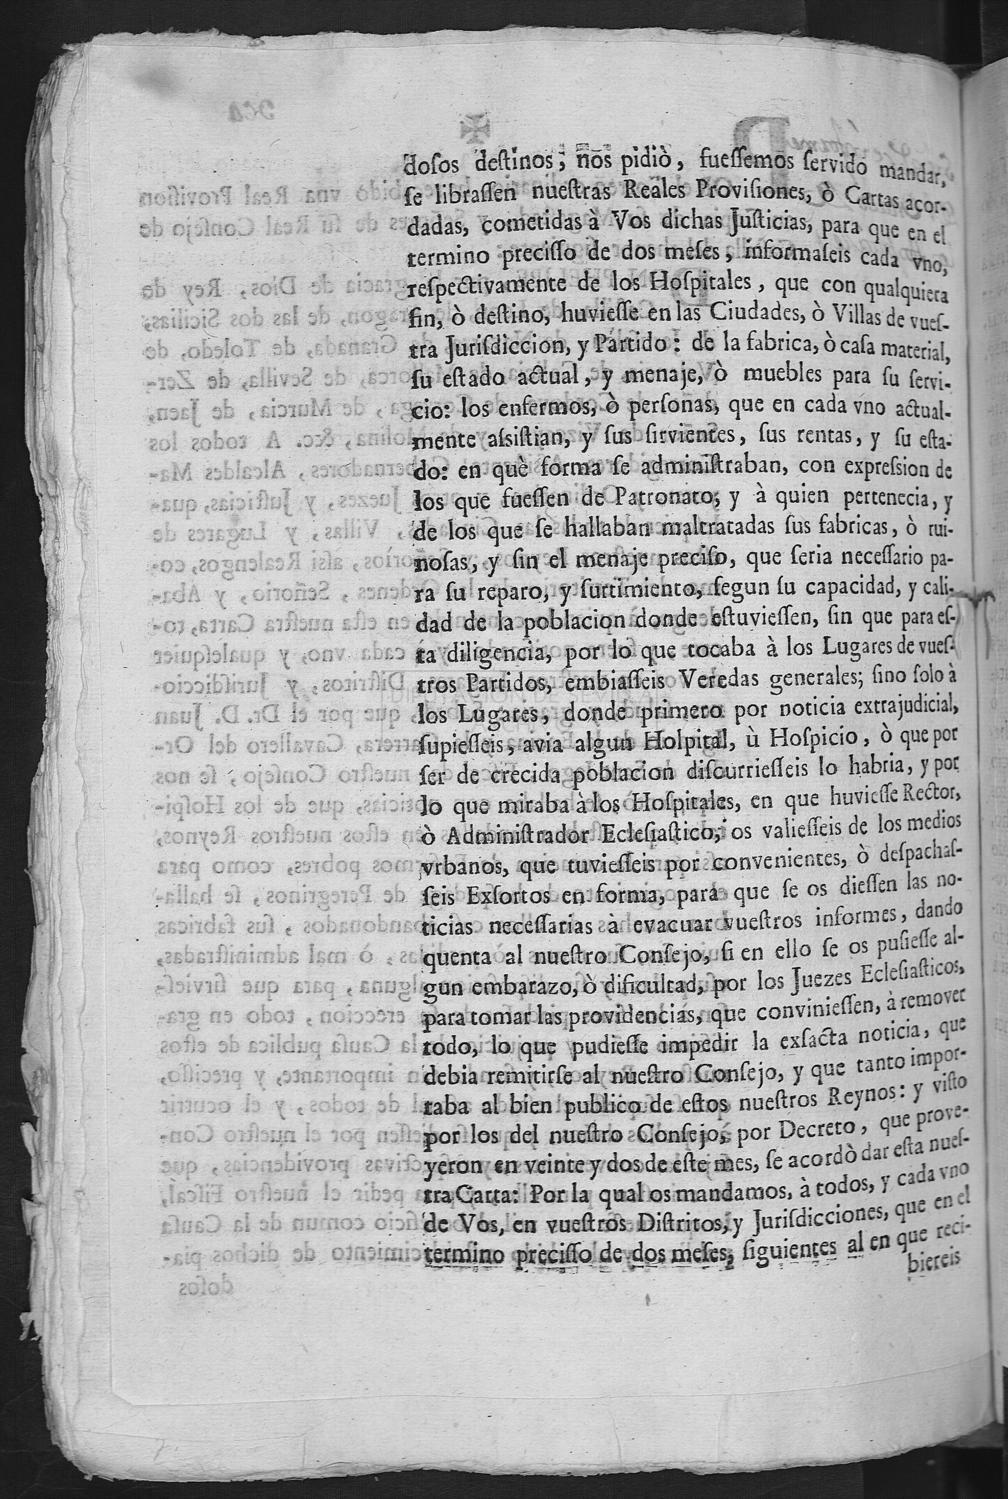 dosos destinos; nos pidiò, fuessemos servido mandar,
se librassen nuestras Reales Provisiones, ò Cartas acor-
dadas, cometidas à Vos dichas Justicias, para que en el
termino precisso de dos meses, informaseis cada vno,
respectivamente de los Hospitales, que con qualquiera
fin, ò destino, huviesse en las Ciudades, ò Villas de vues-
tra Jurisdiccion, y Partido: de la fabrica, ò casa material,
su estado actual, y menaje, ò muebles para su servi-
cio: los enfermos, ò personas, que en cada vno actual-
mente assistian, y sus sirvientes, sus rentas, y su esta-
do: en què forma se administraban, con expression de
los que fuessen de Patronato; y à quien pertenecia, y
de los que se hallaban maltratadas sus fabricas, ò rui-
nosas, y sin el menaje preciso, que seria necessario pa-
ra su reparo, y surtimiento, segun su capacidad, y cali-
dad de la poblacion donde estuviessen, sin que para es-
ta diligencia, por lo que tocaba à los Lugares de vues-
tros Partidos, embiasseis Veredas generales; sino solo à
los Lugares, donde primero por noticia extrajudicial,
supiesseis, avia algun Hospital, ù Hospicio, ò que por
ser de crecida poblacion discurriesseis lo habria, y por
lo que miraba à los Hospitales, en que huviesse Rector,
ò Administrador Eclesiastico; os valiesseis de los medios
vrbanos, que tuviesseis por convenientes, ò despachas-
seis Exsortos en forma, para que se os diessen las no-
ticias necessarias à evacuar vuestros informes, dando
quenta al nuestro Consejo, si en ello se os pusiesse al-
gun embarazo, ò dificultad, por los Juezes Eclesiasticos,
para tomar las providencias, que conviniessen, à remover
todo, lo que pudiesse impedir la exsacta noticia, que
debia remitirse al nuestro Consejo, y que tanto impor-
taba al bien publico de estos nuestros Reynos: y visto
por los del nuestro Consejo, por Decreto, que prove-
yeron en veinte y dos de este mes, se acordò dar esta nues-
tra Carta: Por la qual os mandamos, à todos, y cada vno
de Vos, en vuestros Distritos, y Jurisdicciones, que en el
termino precisso de dos meses, siguientes al en que reci-
biereis